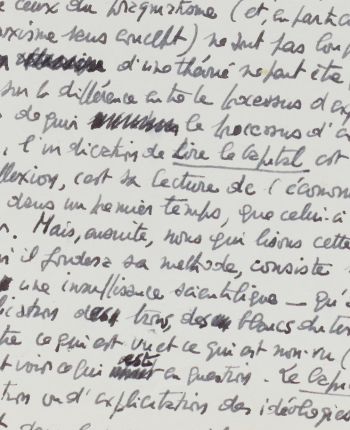 ceux du pragmatisme (et, en partic
sans concept) ne sont pas
d'une théorie ne peut être
sur la différence entre le processus d'ex
de quoi le processus d'
, l'indication de Lire le Capital est
flexion, c'est sa lecture de l'économ
dans un premier temps, que celui-ci
. Mais, ensuite, nous qui lisons cette
il fondera sa méthode, consiste
une insuffisance scientifique — qu'
lication des trous, des blancs du tex
tre ce qui est vu et ce qui est non-vu (
t voir ce qui est en question. Le Capi
tion d'explicitation des idéologie